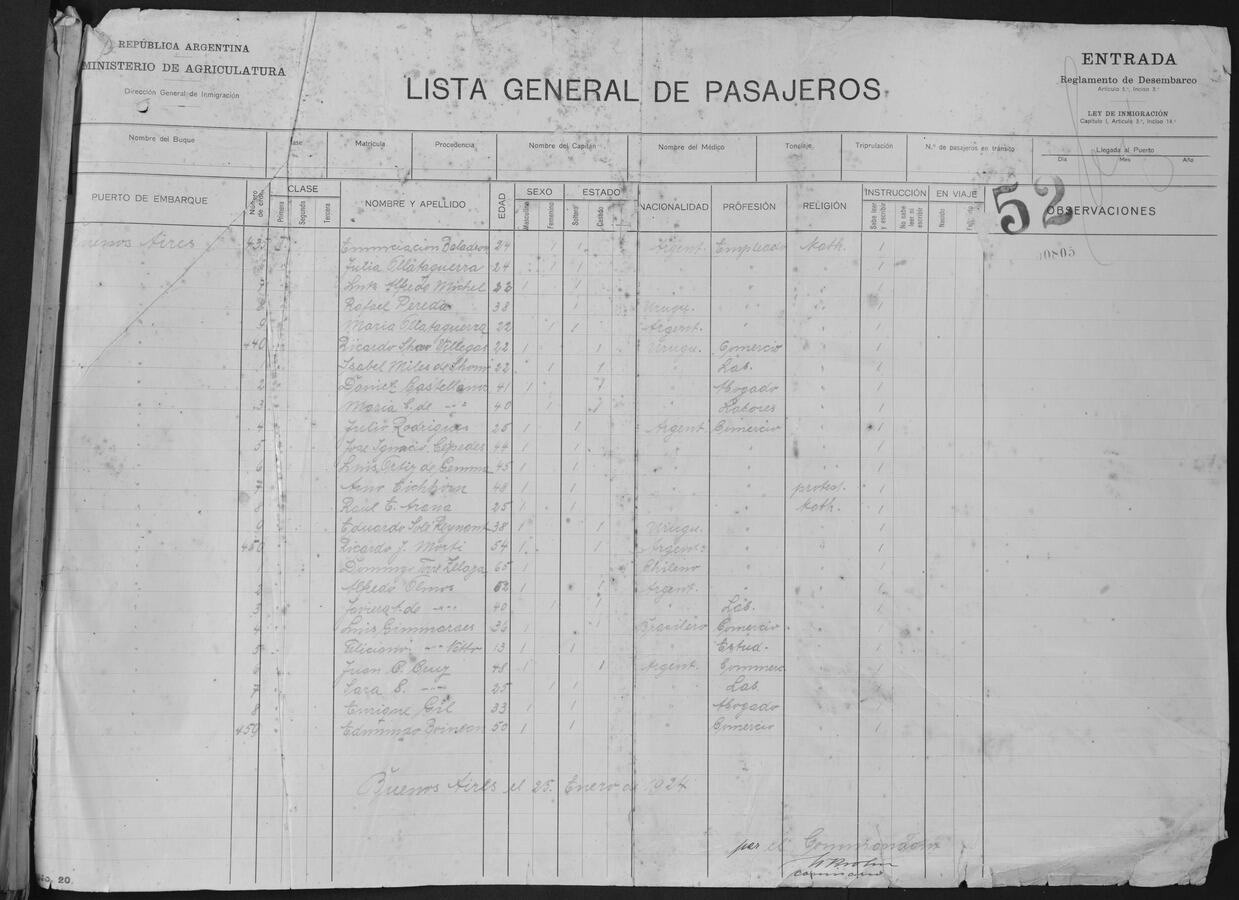 REPÚBLICA ARGENTINA
MINISTERIO DE AGRICULTURA
Dirección General de Inmigración
LISTA GENERAL DE PASAJEROS
ENTRADA
Reglamento de Desembarco
Artículo 5º, Inciso 3º
LEY DE INMIGRACIÓN
Capítulo I, Artículo 3º, Inciso 14º
Nombre del Buque Matrícula Procedencia Nombre del Capitán Nombre del Médico Tonelaje Tripulación N.º de pasajeros en tránsito Llegada al Puerto
Día Mes Año
PUERTO DE EMBARQUE Número de orden CLASE NOMBRE Y APELLIDO EDAD SEXO ESTADO NACIONALIDAD PROFESIÓN RELIGIÓN INSTRUCCIÓN EN VIAJE OBSERVACIONES
Primera Segunda Tercera Masculino Femenino Soltero Casado Sabe leer y escribir No sabe leer ni escribir Nacido
52
Buenos Aires Enunciacion 24 1 1 Argent. Empleado Kath. 1
Julia 24 1 1 " " 1
7 Luis Alfredo Michel 22 1 1 " " 1
8 Rafael Pereda 38 1 1 Urugu. " " 1
9 Maria 22 1 1 Argent. " " 1
440 Ricardo Villegas 22 1 1 Urugu. Comercio " 1
1 Isabel Miles de 22 1 1 " Lab. " 1
2 Daniel Castellano 41 1 1 " Abogado " 1
3 Maria de -"- 40 1 1 " Labores " 1
4 Julio Rodrigues 25 1 1 Argent. Comercio " 1
5 Jose Ignacio Cespedes 44 1 1 " " " 1
6 Luis Ortiz de 45 1 1 " " " 1
7 Arno Eichhorn 48 1 1 " " protest. 1
8 Raul E. Arana 25 1 1 " " Kath. 1
9 Eduardo 38 1 1 Urugu. " " 1
450 Ricardo J. 54 1 1 Argent. " " 1
1 Domingo 65 1 1 Chileno " " 1
2 Alfredo Olmos 52 1 1 Argent. " " 1
3 de -"- 40 1 1 " Lab. " 1
4 Luis Gimmaraes 36 1 1 Brasilero Comercio " 1
5 Feliciano -"- Netto 13 1 1 " Estud. " 1
6 Juan C. Cruz 48 1 1 Argent. Commerc " 1
7 Sara E. -"- 25 1 1 " Lab. " 1
8 Enrique Gil 33 1 1 " Abogado " 1
459 Edmundo 50 1 1 " Comercio " 1
Buenos Aires el 25. Enero de 1924
por el Commandante
No. 20